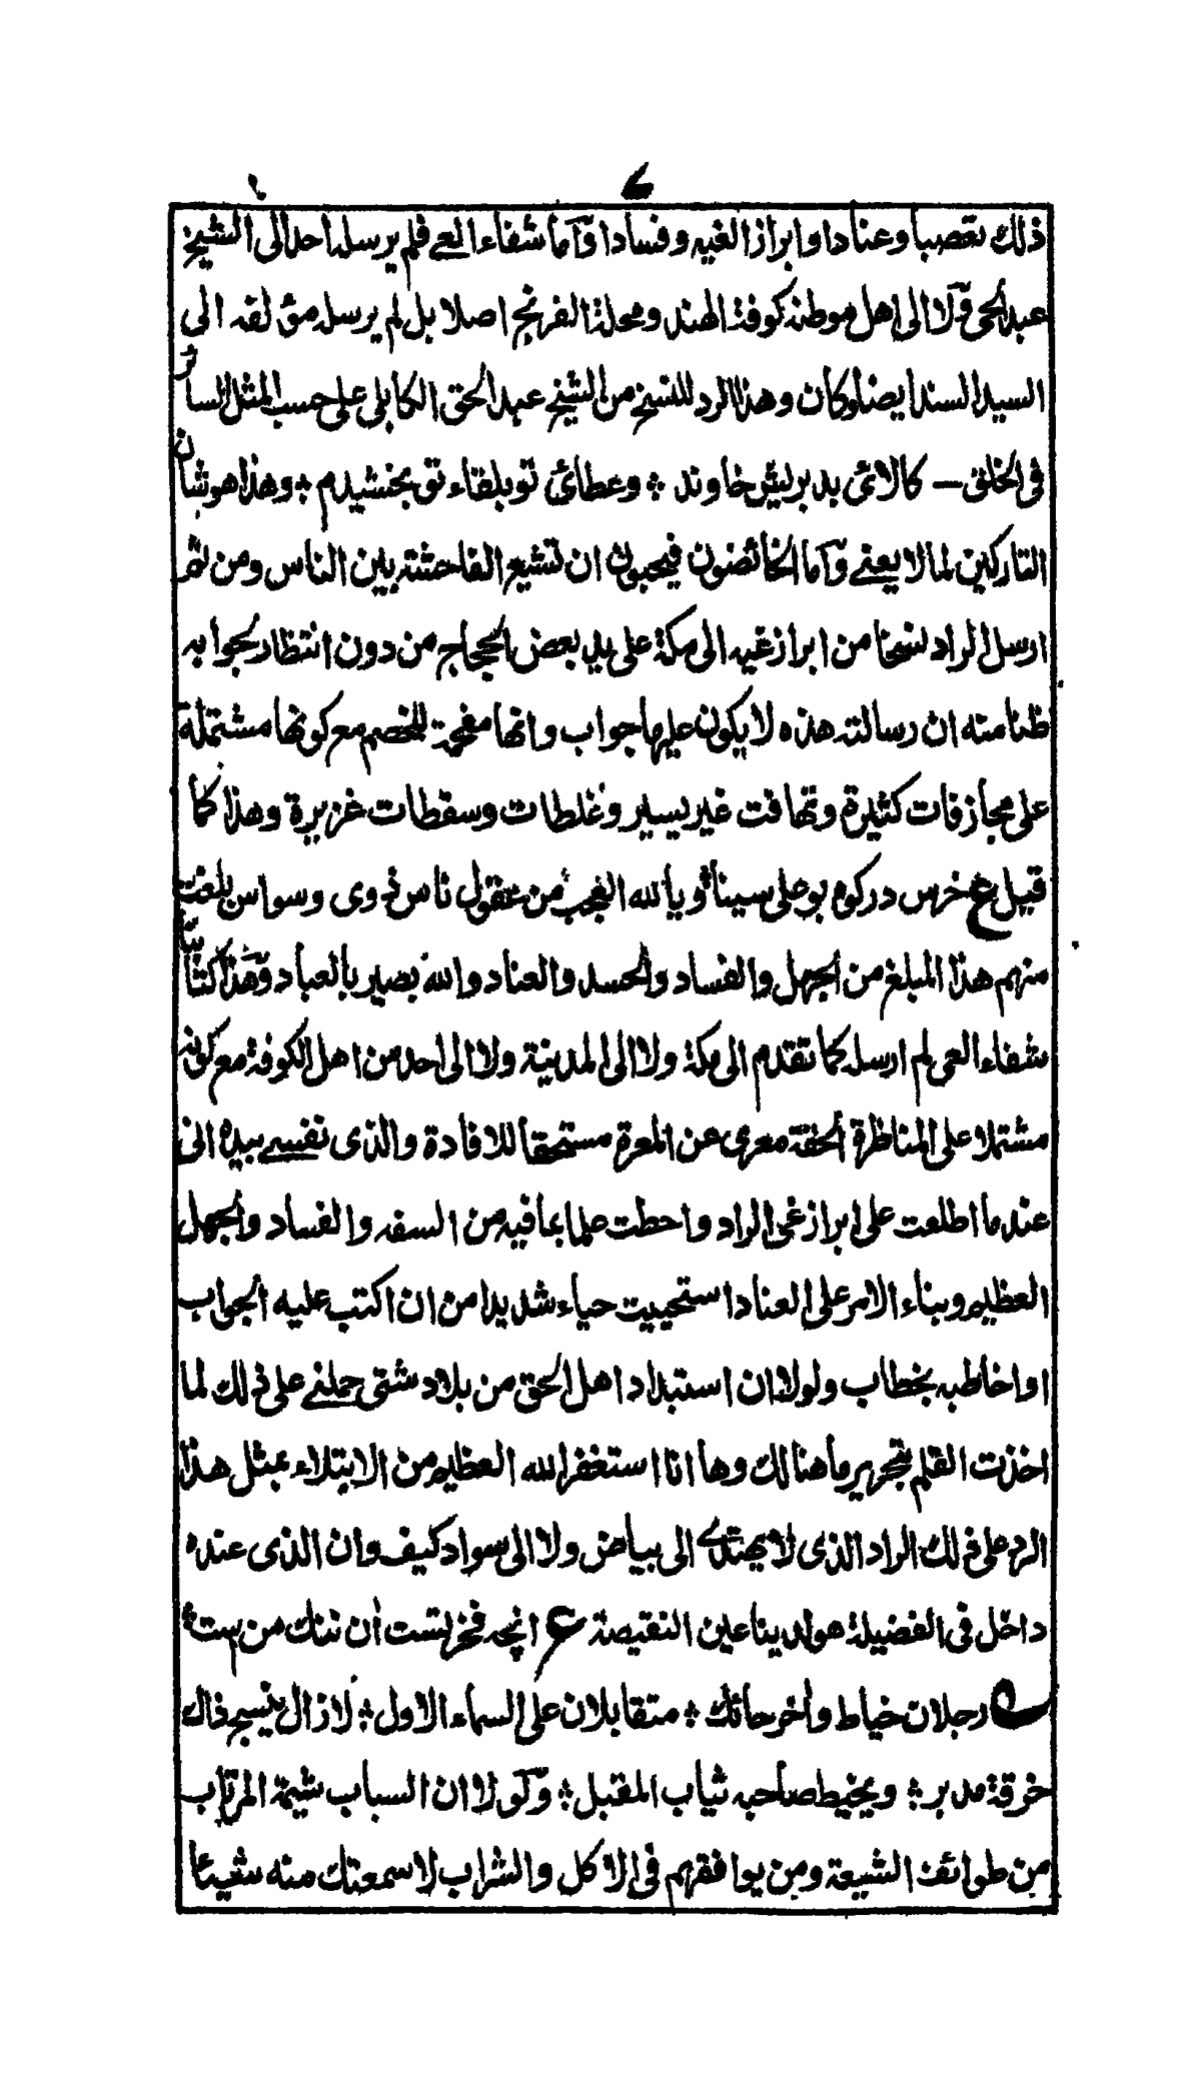 ذلك تعصبا وعنادا وابراز الغيه وفسادا وآما شفاء العي فلم يرسله احد الى الشيخ
عبد الحي ولا الى اهل موطنه كوفة الهند ومحلة الفرنج اصلا بل لم يرسله مؤلفه الى
السيد السند ايضا وكان وهذا الرد للشيخ من الشيخ عبد الحق الكابلى على حسب المثل السائر
فى الخلق — كالائى بد بريش خاوند ؞ وعطائ تو بلقاء تو بخشيدم ؞ وهذا هو شان
التاركين لما لا يعنے وآما الخائضون فيحبون ان تشيع الفاحشة بين الناس ومن ثم
ارسل الراد نسخا من ابراز غيه الى مكة على يد بعض الحجاج من دون انتظار لجوابه
ظنا منه ان رسالته هذه لا يكون عليها جواب وانها مفحمة للخصم مع كونها مشتملة
على مجازفات كثيرة وتهافت غير يسير وغلطات وسقطات غزيرة وهذا كما
قيل ع خرس در كوه بو على سينا ؞ ويا لله العجب من عقول ناس ذوى وسواس بلغت
منهم هذا المبلغ من الجهل والفساد والحسد والعناد والله بصير بالعباد وهذا كتابنا
شفاء العى لم ارسله كما تقدم الى مكة ولا الى المدينة ولا الى احد من اهل الكوفة مع كونه
مشتملا على المناظرة الحقة معرى عن المعرة مستحقا للافادة والذى نفسے بيده انى
عندما اطلعت على ابراز غى الراد واحطت علما بما فيه من السفه والفساد والجهل
العظيم وبناء الامر على العناد استحييت حياء شديدا من ان اكتب عليه الجواب
او اخاطبه بخطاب ولولا ان استبداد اهل الحق من بلاد شتى حملنے على ذلك لما
اخذت القلم بتحرير ما هنالك وها انا استغفر الله العظيم من الابتلاء بمثل هذا
الرد على ذلك الراد الذى لا يهتدے الى بياض ولا الى سواد كيف وان الذى عنده
داخل فى الفضيلة هو لدينا عين النقيصة ع انچه فخر تست آن ننگ من ست
رجلان خياط وآخر حائك ؞ متقابلان على السماء الاول ؞ لا زال ينسج ذاك
خرقة مدبر ؞ ويخيط صاحبه ثياب المقبل ؞ ولولا ان السباب شيمة المرتاب
من طوائف الشيعة ومن يوافقهم فى الاكل والشراب لاسمعتك منه شيئا